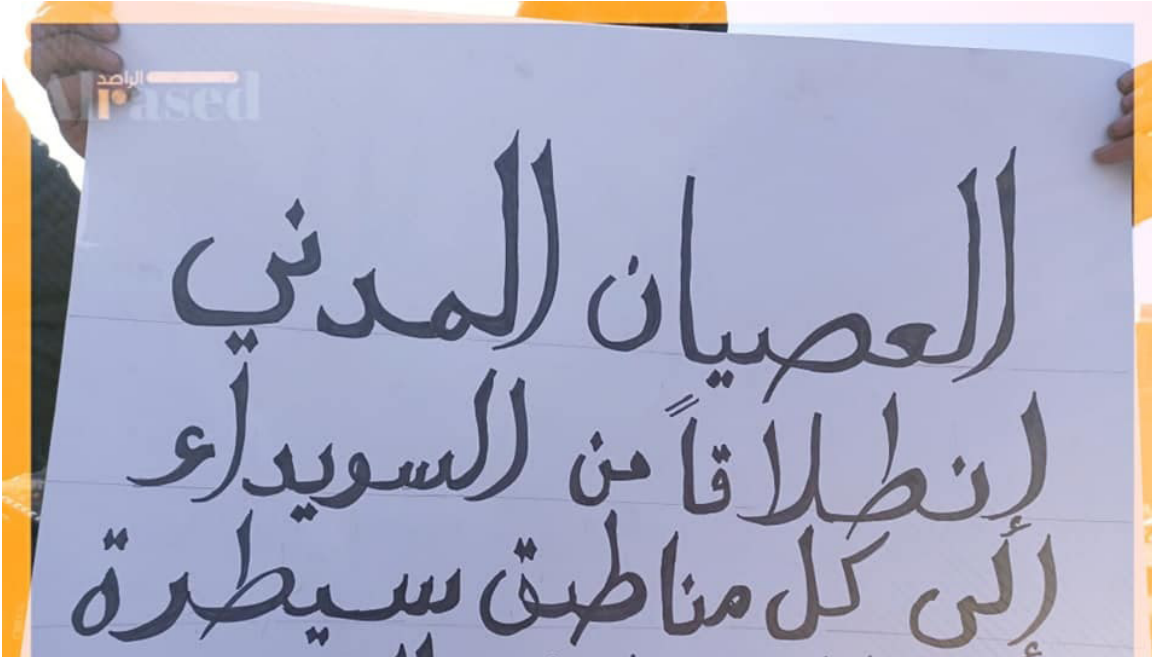 الراصد
Alrased
العصيان المدني
إنطلاقاً من السويداء
إلى كل مناطق سيطرة